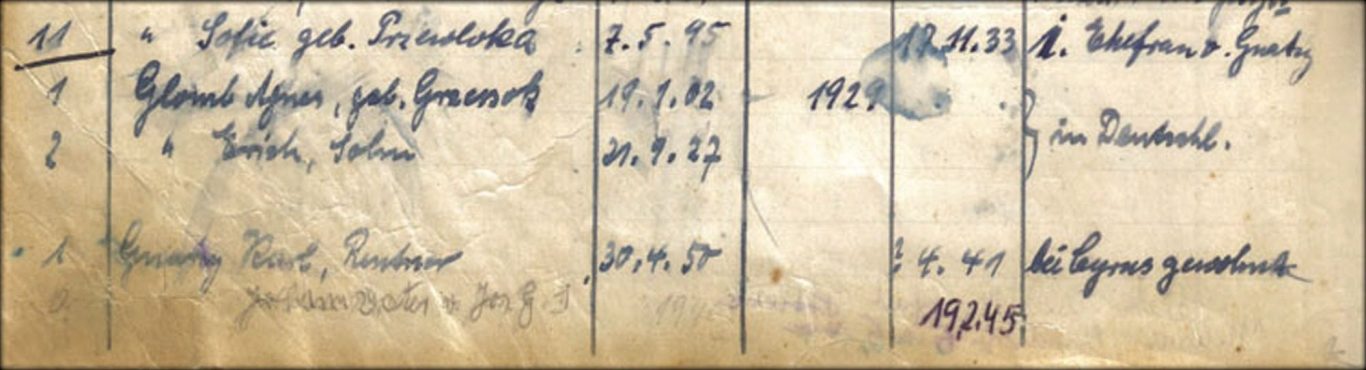 11 " Sofie geb. Przewloka 7.5.95 17.11.33 1. Ehefrau v. Gnatzy
1 Glomb Agnes, geb. Grzesok 19.1.02 1929
2 " Erich, Sohn 21.9.27 in Deutschl.
1 Gnatzy Karl, Rentner 30.4.50 ? 4.41 bei Cyrus gewohnt
Johann Vater v. Jos. G. I
19.2.45